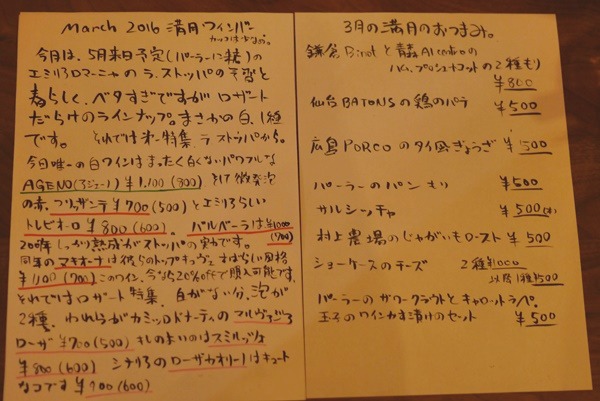 March 2016 満月ワインバー
カッコは少なめ。
今月は、5月来日予定(パーラーに緒)の
エミリアロマーニャのラ・ストッパの予習と
春らしく、ベタすぎですがロザート
だらけのラインナップ。まさかの白、1種
です。それではオー特集、ラストッパから。
今日唯一の白ワインはまったく白くないパワフルな
AGENO ¥1,100 (800) そして微発泡
の赤、フリッザンテ ¥700 (500) とエミリアらしい
トレビオーロ ¥800 (600)。バルベーラは ¥1000
(700)
しっかり熟成がストッパの実力です。
同年のマキオーナは彼らのトップキュヴェ。すばらしい同格
¥1,100 (700) このワイン、今なら20%offで購入可能です。
それではロザート特集、白がない分、泡が
2種、われらがカミッロドナーティのマルヴァジア
ローザ ¥700 (500) きのよいのはスミルッツァ
¥800 (600) シチリアのローザカオリーノはキュート
なコです ¥900 (600)
3月の満月のおつまみ。
鎌倉 Binotと青森 Alcentroの
ハム、プロシュートコットの2種もり
¥800
仙台BATONSの鶏のパテ ¥500
広島PORCOのタイ風ぎょうざ ¥500
パーラーのパンもり ¥500
サルシッチャ ¥500(本)
村上農場のじゃがいもロースト ¥500
ショーケースのチーズ 2種¥1000
以降1種¥500
パーラーのザワークラウトとキャロットラペ。
玉子のワインかす漬けのセット
¥500